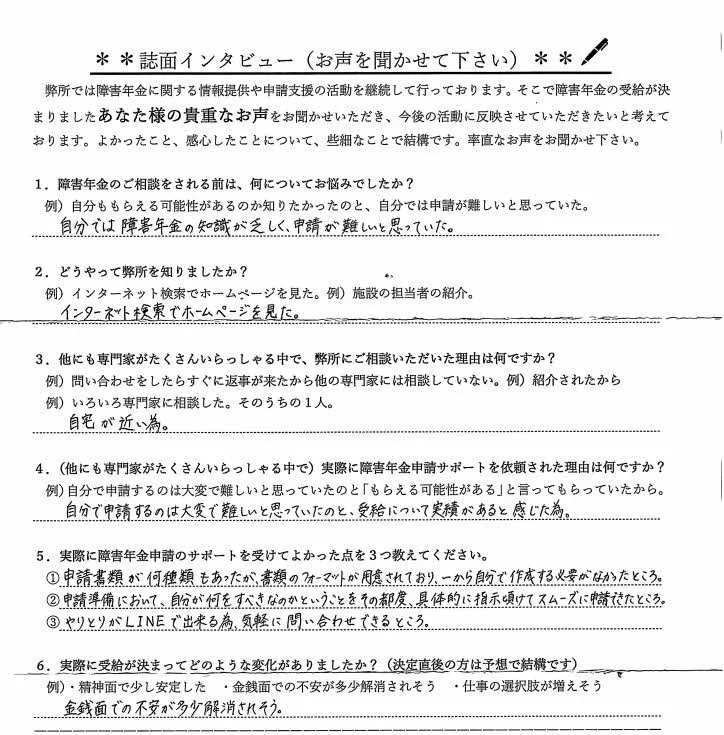 ＊＊誌面インタビュー（お声を聞かせて下さい）＊＊
弊所では障害年金に関する情報提供や申請支援の活動を継続して行っております。そこで障害年金の受給が決
まりましたあなた様の貴重なお声をお聞かせいただき、今後の活動に反映させていただきたいと考えて
おります。よかったこと、感心したことについて、些細なことで結構です。率直なお声をお聞かせ下さい。
1．障害年金のご相談をされる前は、何についてお悩みでしたか？
例）自分ももらえる可能性があるのか知りたかったのと、自分では申請が難しいと思っていた。
自分では障害年金の知識が乏しく、申請が難しいと思っていた。
2．どうやって弊所を知りましたか？
例）インターネット検索でホームページを見た。例）施設の担当者の紹介。
インターネット検索でホームページを見た。
3．他にも専門家がたくさんいらっしゃる中で、弊所にご相談いただいた理由は何ですか？
例）問い合わせをしたらすぐに返事が来たから他の専門家には相談していない。例）紹介されたから
例）いろいろ専門家に相談した。そのうちの１人。
自宅が近い為。
4．（他にも専門家がたくさんいらっしゃる中で）実際に障害年金申請サポートを依頼された理由は何ですか？
例）自分で申請するのは大変で難しいと思っていたのと「もらえる可能性がある」と言ってもらっていたから。
自分で申請するのは大変で難しいと思っていたのと、受給について実績があると感じた為。
5．実際に障害年金申請のサポートを受けてよかった点を３つ教えてください。
①申請書類が何種類もあったが、書類のフォーマットが用意されており、一から自分で作成する必要がなかったところ。
②申請準備において、自分が何をすべきなのかということをその都度、具体的に指示頂けてスムーズに申請できたところ。
③やりとりがLINEで出来る為、気軽に問い合わせできるところ。
6．実際に受給が決まってどのような変化がありましたか？（決定直後の方は予想で結構です）
例）・精神面で少し安定した　・金銭面での不安が多少解消されそう　・仕事の選択肢が増えそう
金銭面での不安が多少解消されそう。